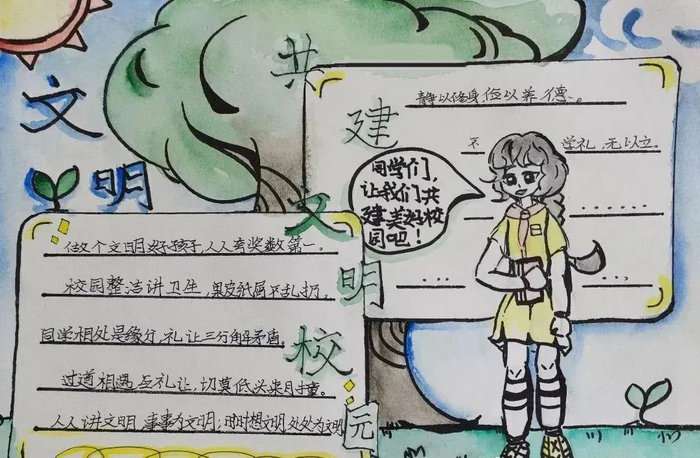 文
明
共
建
文
明
校
元
静以修身,俭以养德。
不
学礼,无以立。
同学们,
让我们共
建美好校
园吧!
做个文明好孩子,人人夸奖数第一。
校园整洁讲卫生,果皮纸屑不乱扔,
同学相处是缘分,礼让三分解矛盾,
过道相遇与礼让,切莫低头来相撞。
人人讲文明,事事为文明;时时想文明,处处为文明